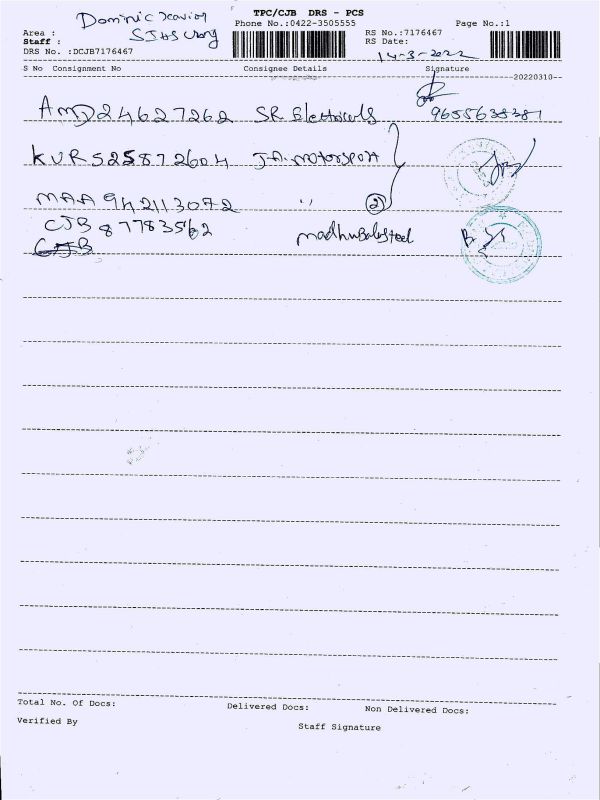 TPC/CJB DRS - PCS
Dominic Xavier
Phone No.:0422-3505555 Page No.:1
Area : RS No.:7176467
Staff : RS Date:
14-3-2022
DRS No. :DCJB7176467
S No Consignment No Consignee Details Signature
20220310
AMD24627262 SR Electricals 9655638381
KUR525872604 J.A. motorsport
MAA942113072 " (2)
CJB 87783562 madhubalasteel
CJB
Total No. Of Docs: Delivered Docs: Non Delivered Docs:
Verified By Staff Signature